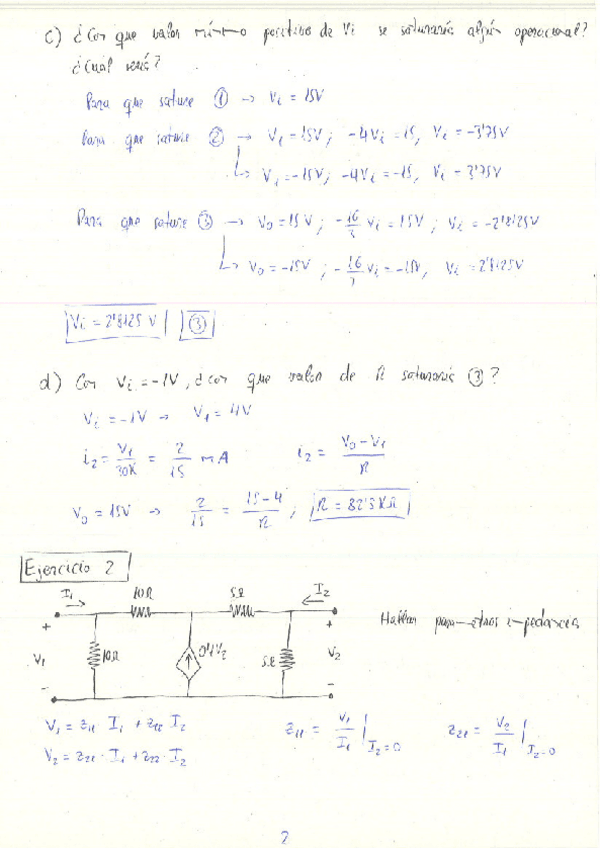 c) ¿Con que valor mínimo positivo de Vi se saturaría algún operacional?
¿Cuál sería?
Para que sature ① → Vi = 15V
Para que sature ② → V1 = 15V ; -4Vi = 15, Vi = -3'75V
↳ V1 = -15V ; -4Vi = -15, Vi = 3'75V
Para que sature ③ → V0 = 15V ; -16/3 Vi = 15V ; Vi = -2'8125V
↳ V0 = -15V ; -16/3 Vi = -15V, Vi = 2'8125V
Vi = 2'8125 V ③
d) Con Vi = -1V, ¿con que valor de R saturaría ③?
Vi = -1V → V1 = 4V
i2 = V1/30K = 2/15 mA i2 = (V0 - V1)/R
V0 = 15V → 2/15 = (15-4)/R ; R = 82'5 KΩ
Ejercicio 2
I1 10Ω 5Ω I2
Hallar parámetros impedancia
+ +
V1 10Ω 0'4V2 5Ω V2
- -
V1 = z11 · I1 + z12 I2 z11 = V1/I1 | I2=0 z21 = V2/I1 | I2=0
V2 = z21 · I1 + z22 · I2
2